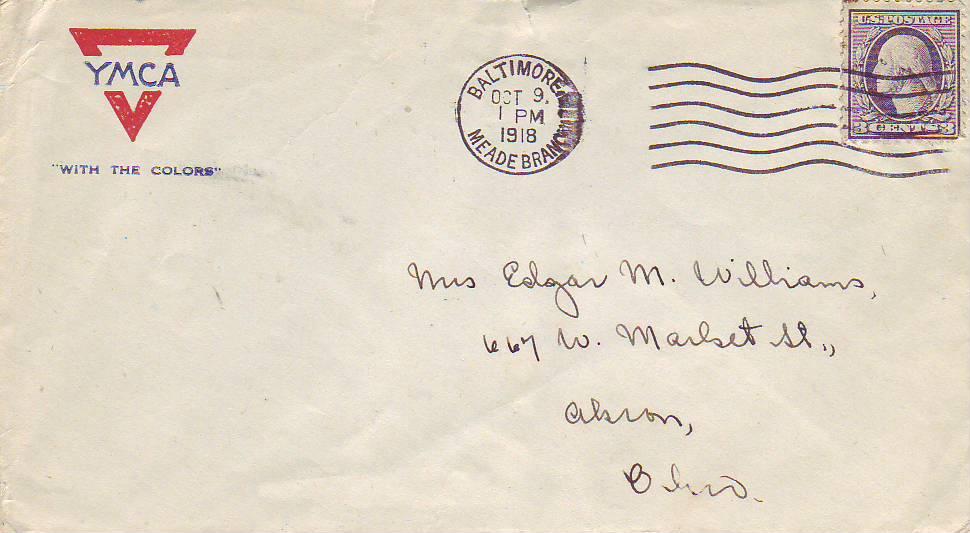 YMCA
"WITH THE COLORS"
BALTIMORE,
OCT 9,
1 PM
1918
MEADE BRANCH
U.S. POSTAGE
3 CENTS 3
Mrs Edgar M. Williams,
667 W. Market St.,
Akron,
Ohio.